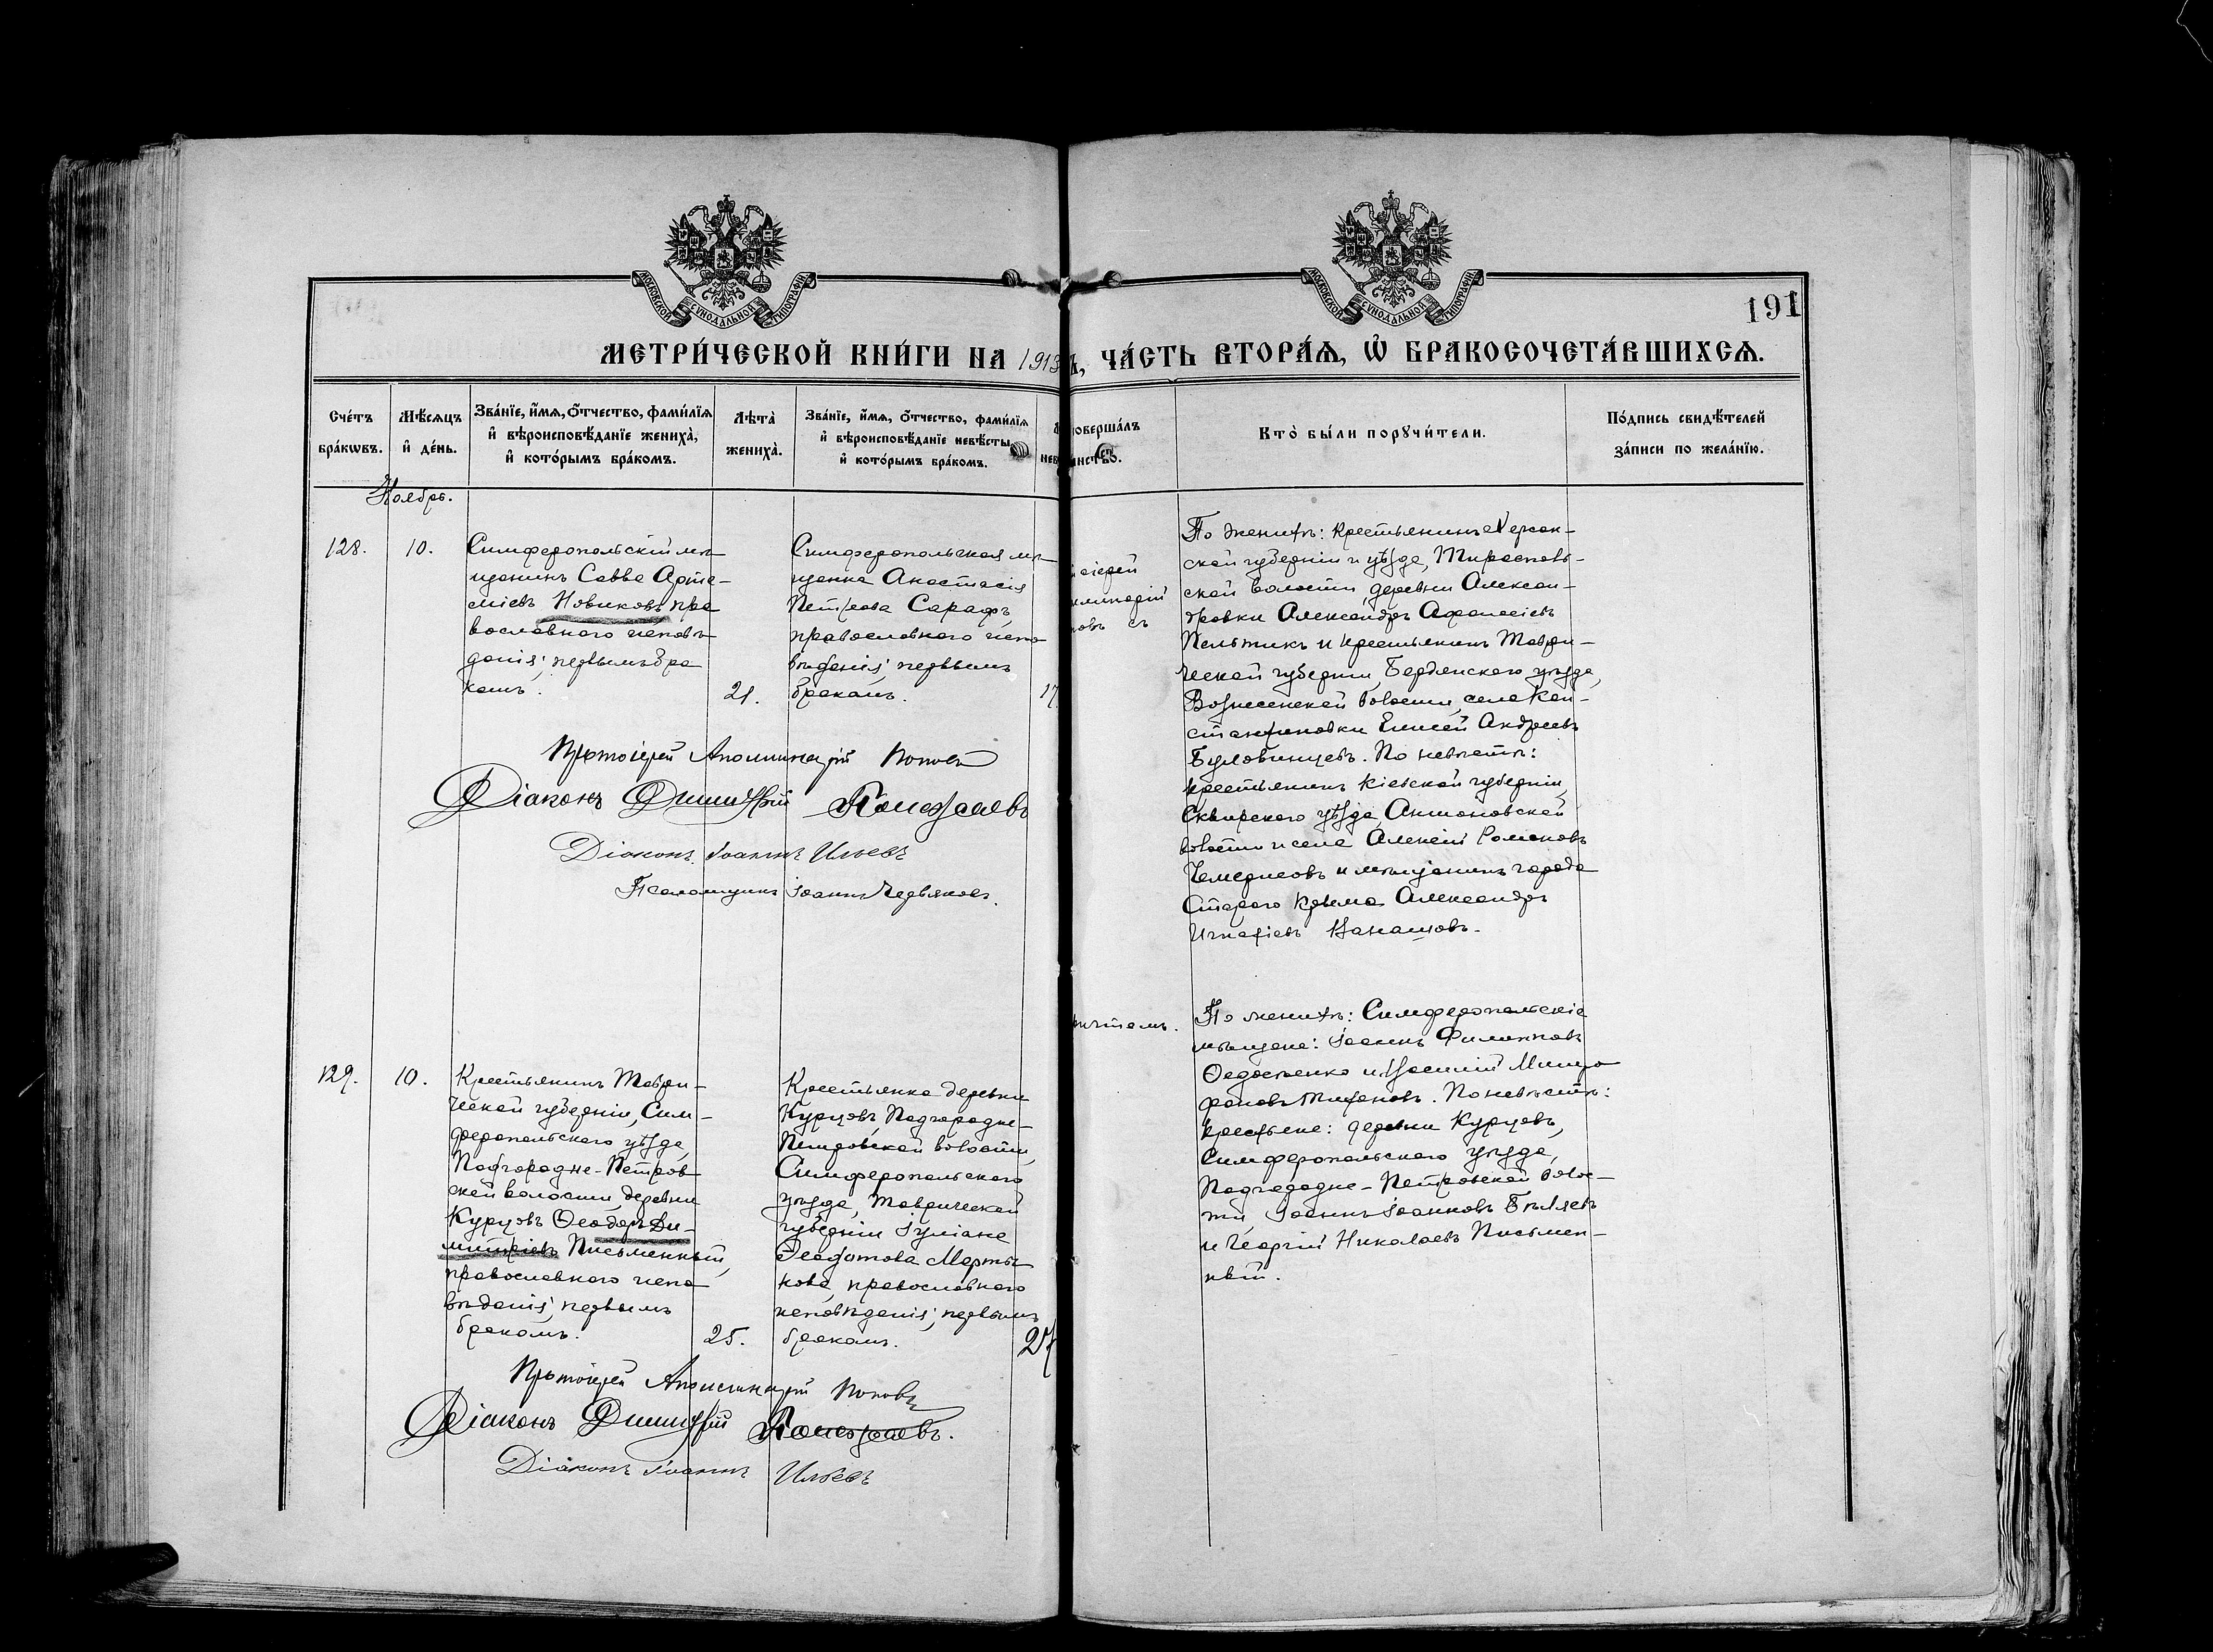 МОСКОВСКОЙ СѴНОДАЛЬНОЙ ТИПОГРАФІИ
МОСКОВСКОЙ СѴНОДАЛЬНОЙ ТИПОГРАФІИ
191
МЕТРИ́ЧЕСКОЙ КНИ́ГИ НА 1913 ЧА́СТЬ ВТОРА́Ѧ, Ѽ БРАКОСОЧЕТА́ВШИХСѦ.
Сче́тъ бра́кѡвъ.
Мѣ́сѧцъ и҆ де́нь.
Зва́нїе, и҆́мѧ, ѻ҆́тчество, фами́лїѧ и҆ вѣроисповѣ́данїе жениха̀, и҆ кото́рымъ бра́комъ.
Лѣта̀ жениха̀.
Зва́нїе, и҆́мѧ, ѻ҆́тчество, фами́лїѧ и҆ вѣроисповѣ́данїе невѣ́сты, и҆ кото́рымъ бра́комъ.
соверша́лъ
Кто̀ бы́ли порꙋчи́тели.
По́дпись свидѣ́телей за́писи по жела́нїю.
Ноябрь.
128.
10.
Симферопольскій мѣ-
щанинъ Савва Арте-
міевъ Новиковъ пра
вославнаго исповѣ-
данія; первымъ бра
комъ.
21.
Симферопольская мѣ-
щанка Анастасія
Петрова Сарафъ,
православнаго испо
вѣданія; первымъ
бракомъ.
17
По женихѣ: крестьянинъ Херсон-
ской губерніи и уѣзда, Тирасповь-
ской волости, деревни Алексан-
дровки Александръ Афанасіевъ
Пельтикъ и крестьянинъ Таври-
ческой губерніи, Бердянскаго уѣзда,
Вознесенской волости, села Кон-
стантиновки Елисей Андреевъ
Буловинцевъ. По невѣстѣ:
крестьянинъ Кіевской губерніи,
Сквирскаго уѣзда, Антоновской
волости и села Алексій Романовъ
и мѣщанинъ города
Стараго Крыма Александръ
Игнатіевъ
Протоіерей Аполлинарій Поповъ
Діаконъ Димитрій
Діаконъ Іоаннъ Ильевъ
Псаломщикъ Іоаннъ Червяковъ.
129.
10.
Крестьянинъ Таври-
ческой губерніи, Сим-
феропольскаго уѣзда,
Подгородне-Петров-
ской волости, деревни
Курцовъ Ѳеодоръ Ди-
митріевъ Письменный,
православнаго испо
вѣданія; первымъ
бракомъ.
25.
Крестьянка деревни
Курцовъ, Подгородне-
Петровской волости,
Симферопольскаго
уѣзда, Таврической
губерніи Іуліана
Ѳеодотова Марты-
нова, православнаго
исповѣданія; первымъ
бракомъ.
По женихѣ: Симферопольскіе
мѣщане: Іоаннъ Филипповъ
Ѳедосѣенко и Василій Митро
фановъ Титовъ. По невѣстѣ:
крестьяне: деревни Курцовъ,
Симферопольскаго уѣзда,
Подгородне-Петровской волос-
ти, Іоаннъ Іоанновъ Бѣляевъ
и Георгій Николаевъ Письмен-
ный.
Протоіерей Аполлинарій Поповъ
Діаконъ Димитрій
Діаконъ Іоаннъ Ильевъ